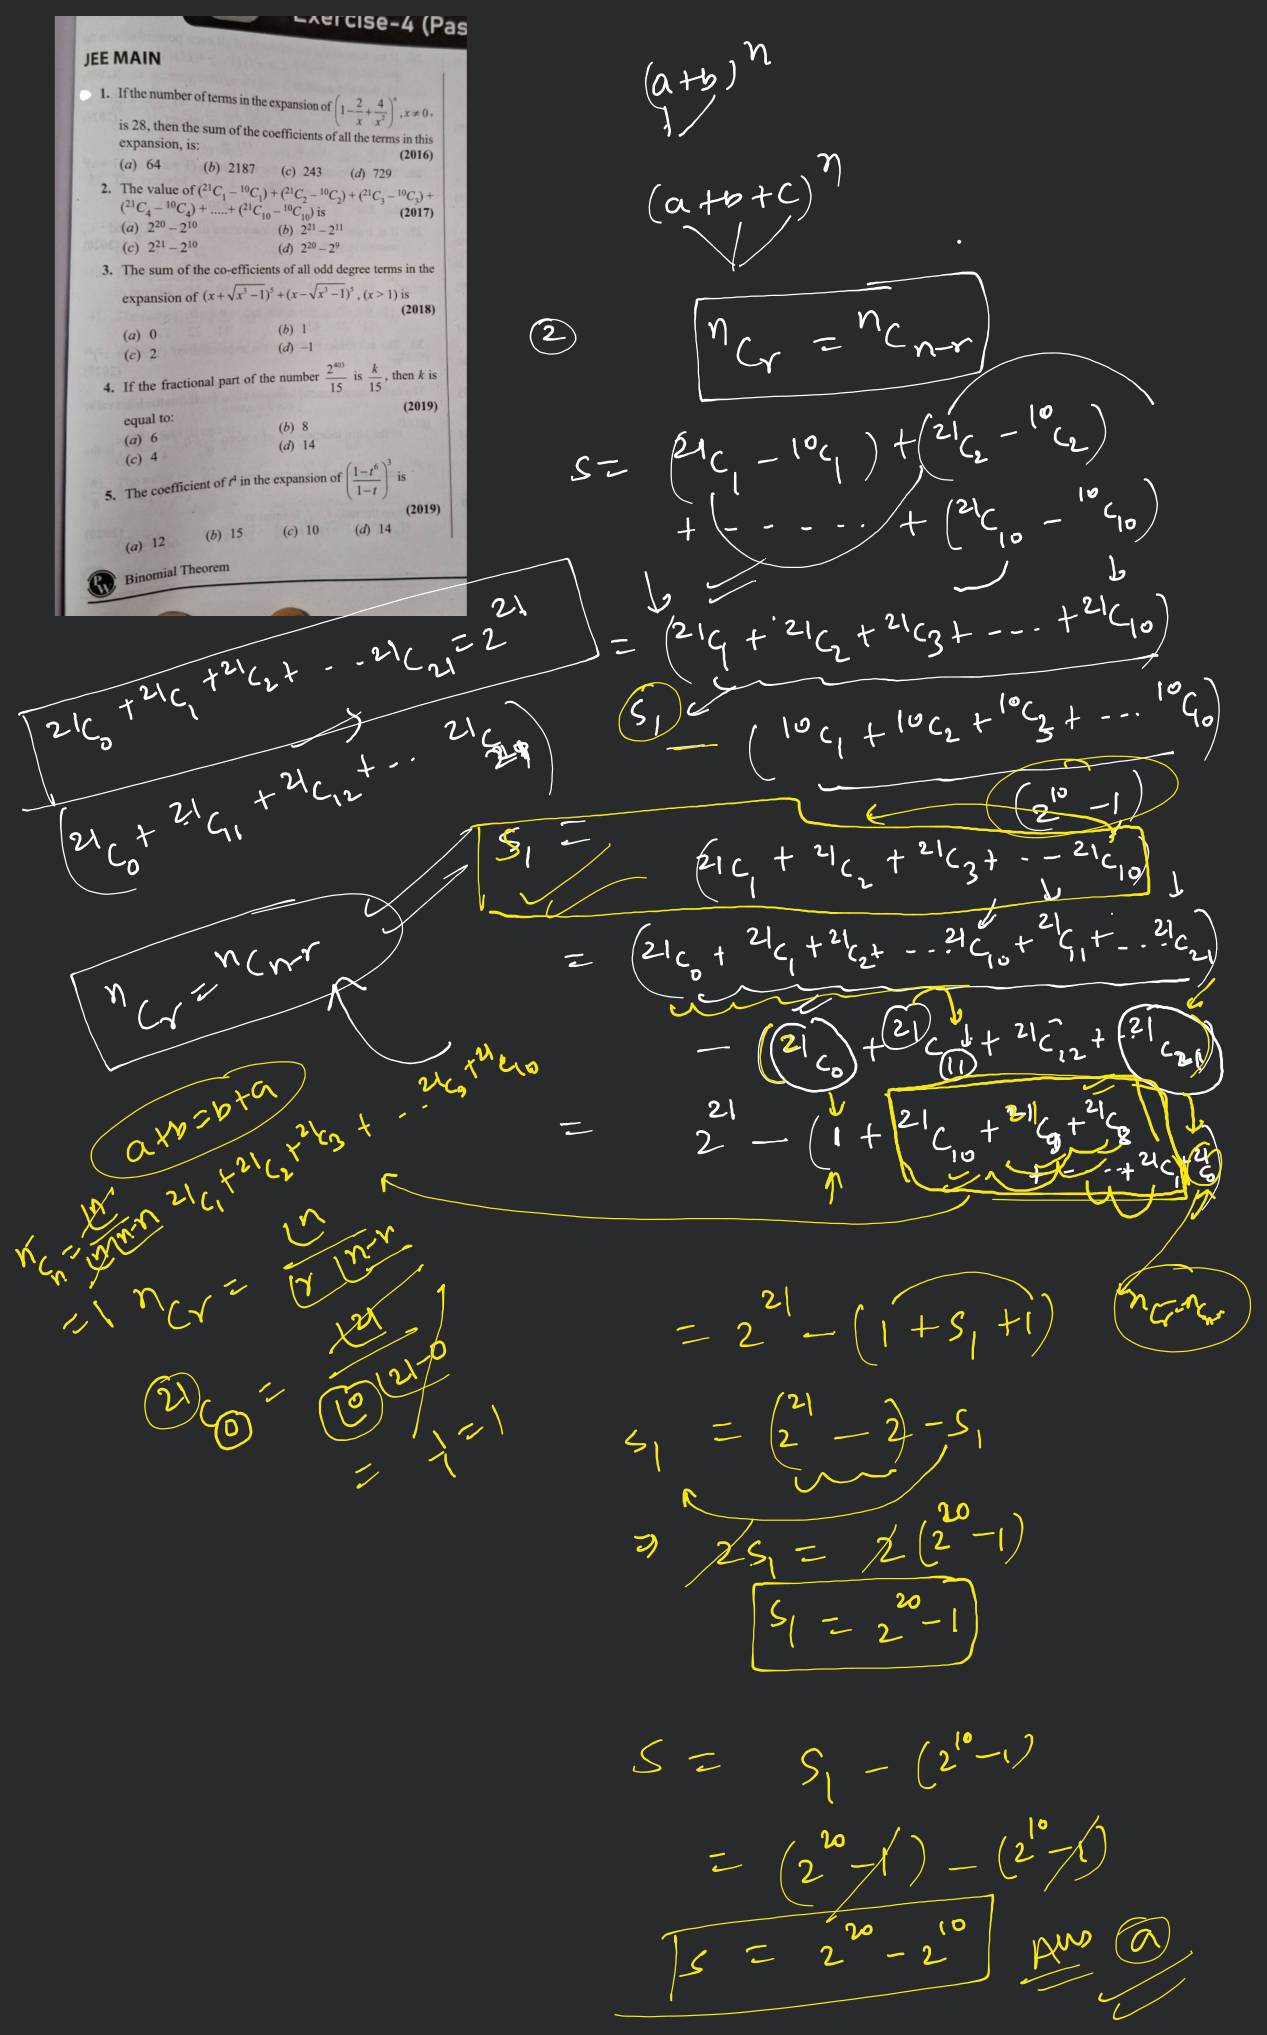 Exercise-4 (Pas
JEE MAIN
1. If the number of terms in the expansion of (1 - 2/x + 4/x²)ⁿ, x ≠ 0,
is 28, then the sum of the coefficients of all the terms in this
expansion, is:
(2016)
(a) 64 (b) 2187 (c) 243 (d) 729
2. The value of (²¹C₁ – ¹⁰C₁) + (²¹C₂ – ¹⁰C₂) + (²¹C₃ – ¹⁰C₃) +
(²¹C₄ – ¹⁰C₄) + .....+ (²¹C₁₀ – ¹⁰C₁₀) is
(2017)
(a) 2²⁰ – 2¹⁰ (b) 2²¹ – 2¹¹
(c) 2²¹ – 2¹⁰ (d) 2²⁰ – 2⁹
3. The sum of the co-efficients of all odd degree terms in the
expansion of (x + √(x³ –1))⁵ + (x – √(x³ –1))⁵, (x > 1) is
(2018)
(a) 0 (b) 1
(c) 2 (d) –1
4. If the fractional part of the number 2⁴⁰³/15 is k/15, then k is
equal to:
(2019)
(a) 6 (b) 8
(c) 4 (d) 14
5. The coefficient of t⁴ in the expansion of ((1–t⁶)/(1–t))³ is
(2019)
(a) 12 (b) 15 (c) 10 (d) 14
PW Binomial Theorem
(a+b)ⁿ
(a+b+c)ⁿ
②
ⁿCᵣ = ⁿCₙ₋ᵣ
S = (²¹C₁ – ¹⁰C₁) + (²¹C₂ – ¹⁰C₂)
+ (- - - - - . . + (²¹C₁₀ – ¹⁰C₁₀)
= (²¹C₁ + ²¹C₂ + ²¹C₃ + - - - . + ²¹C₁₀)
S₁
– (¹⁰C₁ + ¹⁰C₂ + ¹⁰C₃ + - ... ¹⁰C₁₀)
(2¹⁰ –1)
²¹C₀ + ²¹C₁ + ²¹C₂ + - - - ²¹C₂₁ = 2²¹
(²¹C₀ + ²¹C₁₁ + ²¹C₁₂ + - . . ²¹C₂₁)
S₁ = (²¹C₁ + ²¹C₂ + ²¹C₃ + - - - ²¹C₁₀)
ⁿCᵣ = ⁿCₙ₋ᵣ
= (²¹C₀ + ²¹C₁ + ²¹C₂ + - . . ²¹C₁₀ + ²¹C₁₁ + - . . ²¹C₂₁)
– (²¹C₀ + ²¹C₁₁ + ²¹C₁₂ + ²¹C₂₁)
a+b = b+a
²¹C₁ + ²¹C₂ + ²¹C₃ + - . . ²¹C₉ + ²¹C₁₀
= 2²¹ – (1 + ²¹C₁₀ + ²¹C₉ + ²¹C₈
+ - - . . + ²¹C₁ + ²¹C₀)
= 1
ⁿCᵣ = |n / |r |n–r
= 2²¹ – (1 + S₁ + 1)
²¹C₀ = |21 / |0 |21–0
= 1/1 = 1
S₁ = (2²¹ – 2) – S₁
⇒ 2S₁ = 2(2²⁰ –1)
S₁ = 2²⁰ –1
S = S₁ – (2¹⁰ –1)
= (2²⁰ –1) – (2¹⁰ –1)
S = 2²⁰ – 2¹⁰ Ans ⓐ